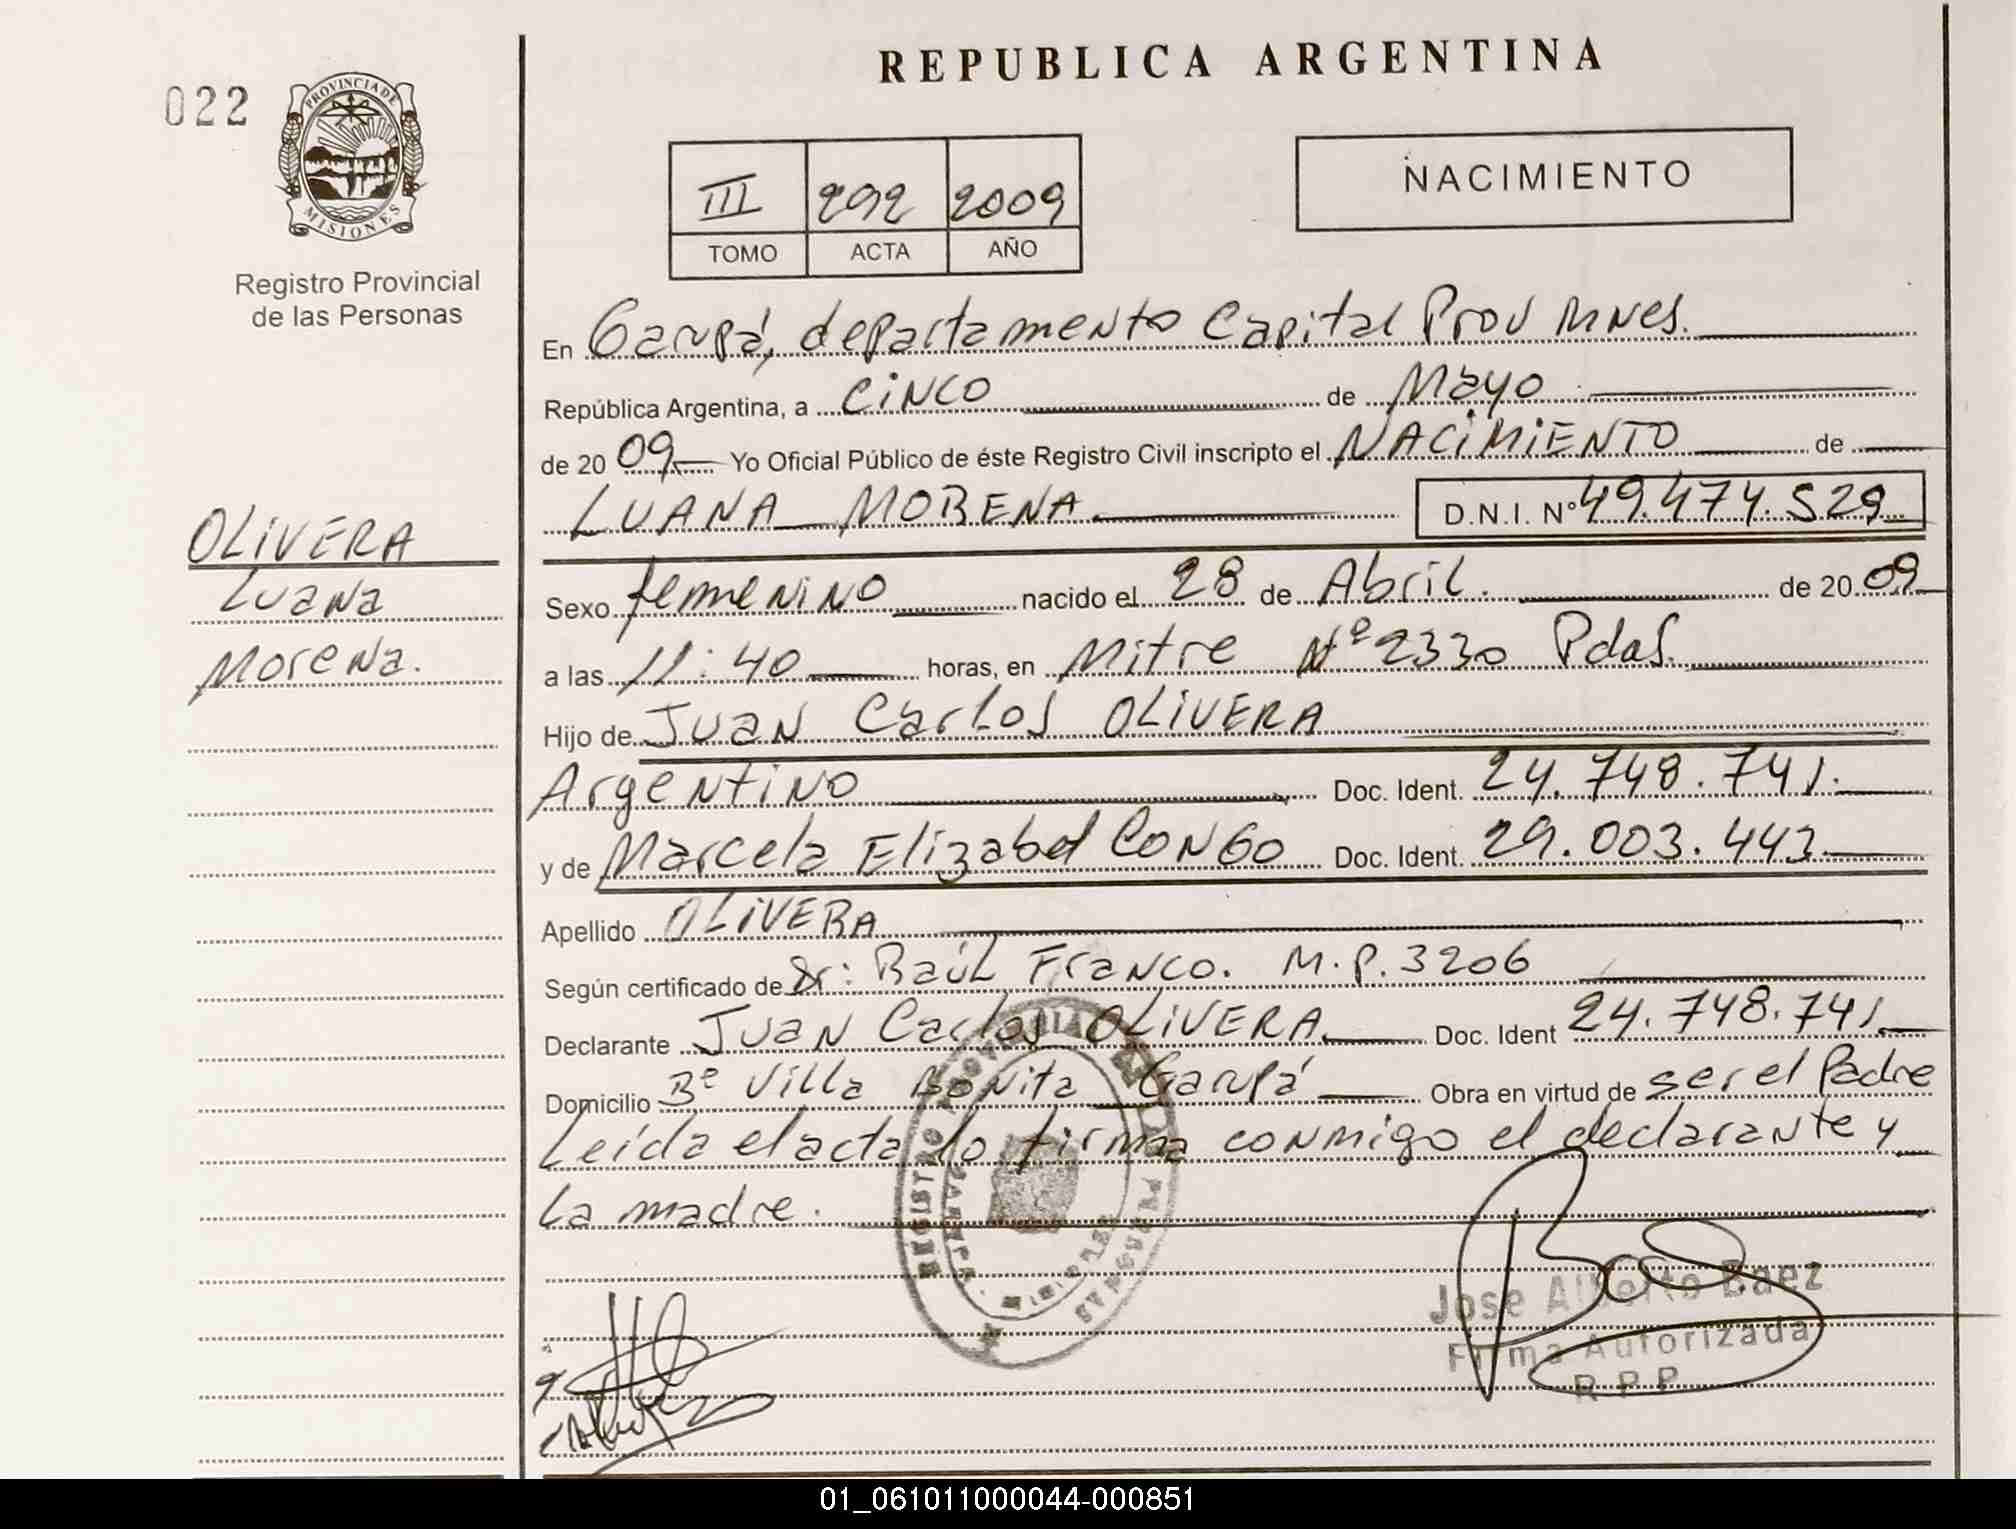 022
PROVINCIA DE
MISIONES
Registro Provincial
de las Personas
REPUBLICA ARGENTINA
III 292 2009
TOMO ACTA AÑO
NACIMIENTO
En Garupá, departamento Capital Prov Mnes.
República Argentina, a CINCO de Mayo
de 20 09 Yo Oficial Público de éste Registro Civil inscripto el NACIMIENTO de
LUANA MORENA D.N.I. Nº 49.474.529
OLIVERA
Luana
Morena.
Sexo femenino nacido el 28 de Abril. de 20 09
a las 11:40 horas, en Mitre Nº 2330 Pdas.
Hijo de Juan Carlos OLIVERA
Argentino Doc. Ident. 24.748.741.
y de Marcela Elizabet CONGO Doc. Ident. 29.003.443
Apellido OLIVERA
Según certificado de Dr: Raúl Franco. M.P. 3206
Declarante Juan Carlos OLIVERA Doc. Ident 24.748.741
Domicilio Bº Villa Bonita Garupá Obra en virtud de ser el Padre
Leída el acta lo firma conmigo el declarante y
la madre.
Jose Alberto Baez
Firma Autorizada
R P P
01_061011000044-000851